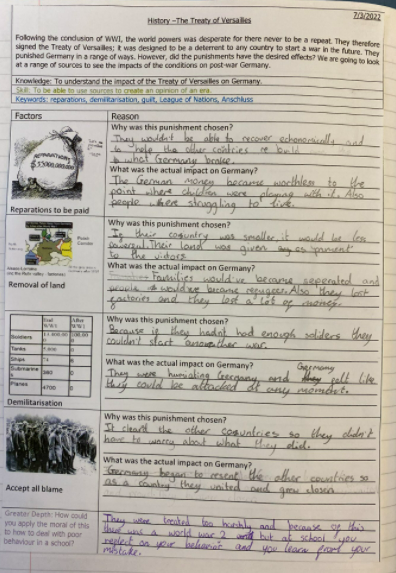 7/3/2022
History –The Treaty of Versailles
Following the conclusion of WW1, the world powers was desperate for there never to be a repeat. They therefore
signed the Treaty of Versailles; it was designed to be a deterrent to any country to start a war in the future. They
punished Germany in a range of ways. However, did the punishments have the desired effects? We are going to look
at a range of sources to see the impacts of the conditions on post-war Germany.
Knowledge: To understand the impact of the Treaty of Versailles on Germany.
Skill: To be able to use sources to create an opinion of an era.
Keywords: reparations, demilitarisation, guilt, League of Nations, Anschluss
Factors
Reason
Why was this punishment chosen?
They wouldn't be able to recover echonomically and
to help the other contries re build
what Germany broke.
What was the actual impact on Germany?
The German money became worthless to the
point where children were playing with it. Also
people where struggling to live.
REPARATIONS
Reparations to be paid
Why was this punishment chosen?
If their country was smaller, it would be less
powerful. Their land was given as
to the victors
What was the actual impact on Germany?
Families would've became seperated and
people would've became refugees. Also they lost
factories and they lost a lot of money.
Polish
Corridor
Removal of land
Why was this punishment chosen?
Because if they hadnt had enough soliders they
couldn't start another war.
What was the actual impact on Germany?
They were humiliating Germany and Germany felt like
they could be attacked at any moment.
Soldiers
Tanks
Ships
Submarines
Planes
4700
0
Demilitarisation
Why was this punishment chosen?
It cleard the other countries so they didn't
have to worry about what they did.
What was the actual impact on Germany?
Germany began to resent the other countries so
as a country they united and grew closer.
Accept all blame
Greater Depth: How could
you apply the moral of this
to how to deal with poor
behaviour in a school?
They were treated too harshly and because of this
there was a world war 2 but at school you
reflect on your behavior and you learn from your
mistake.